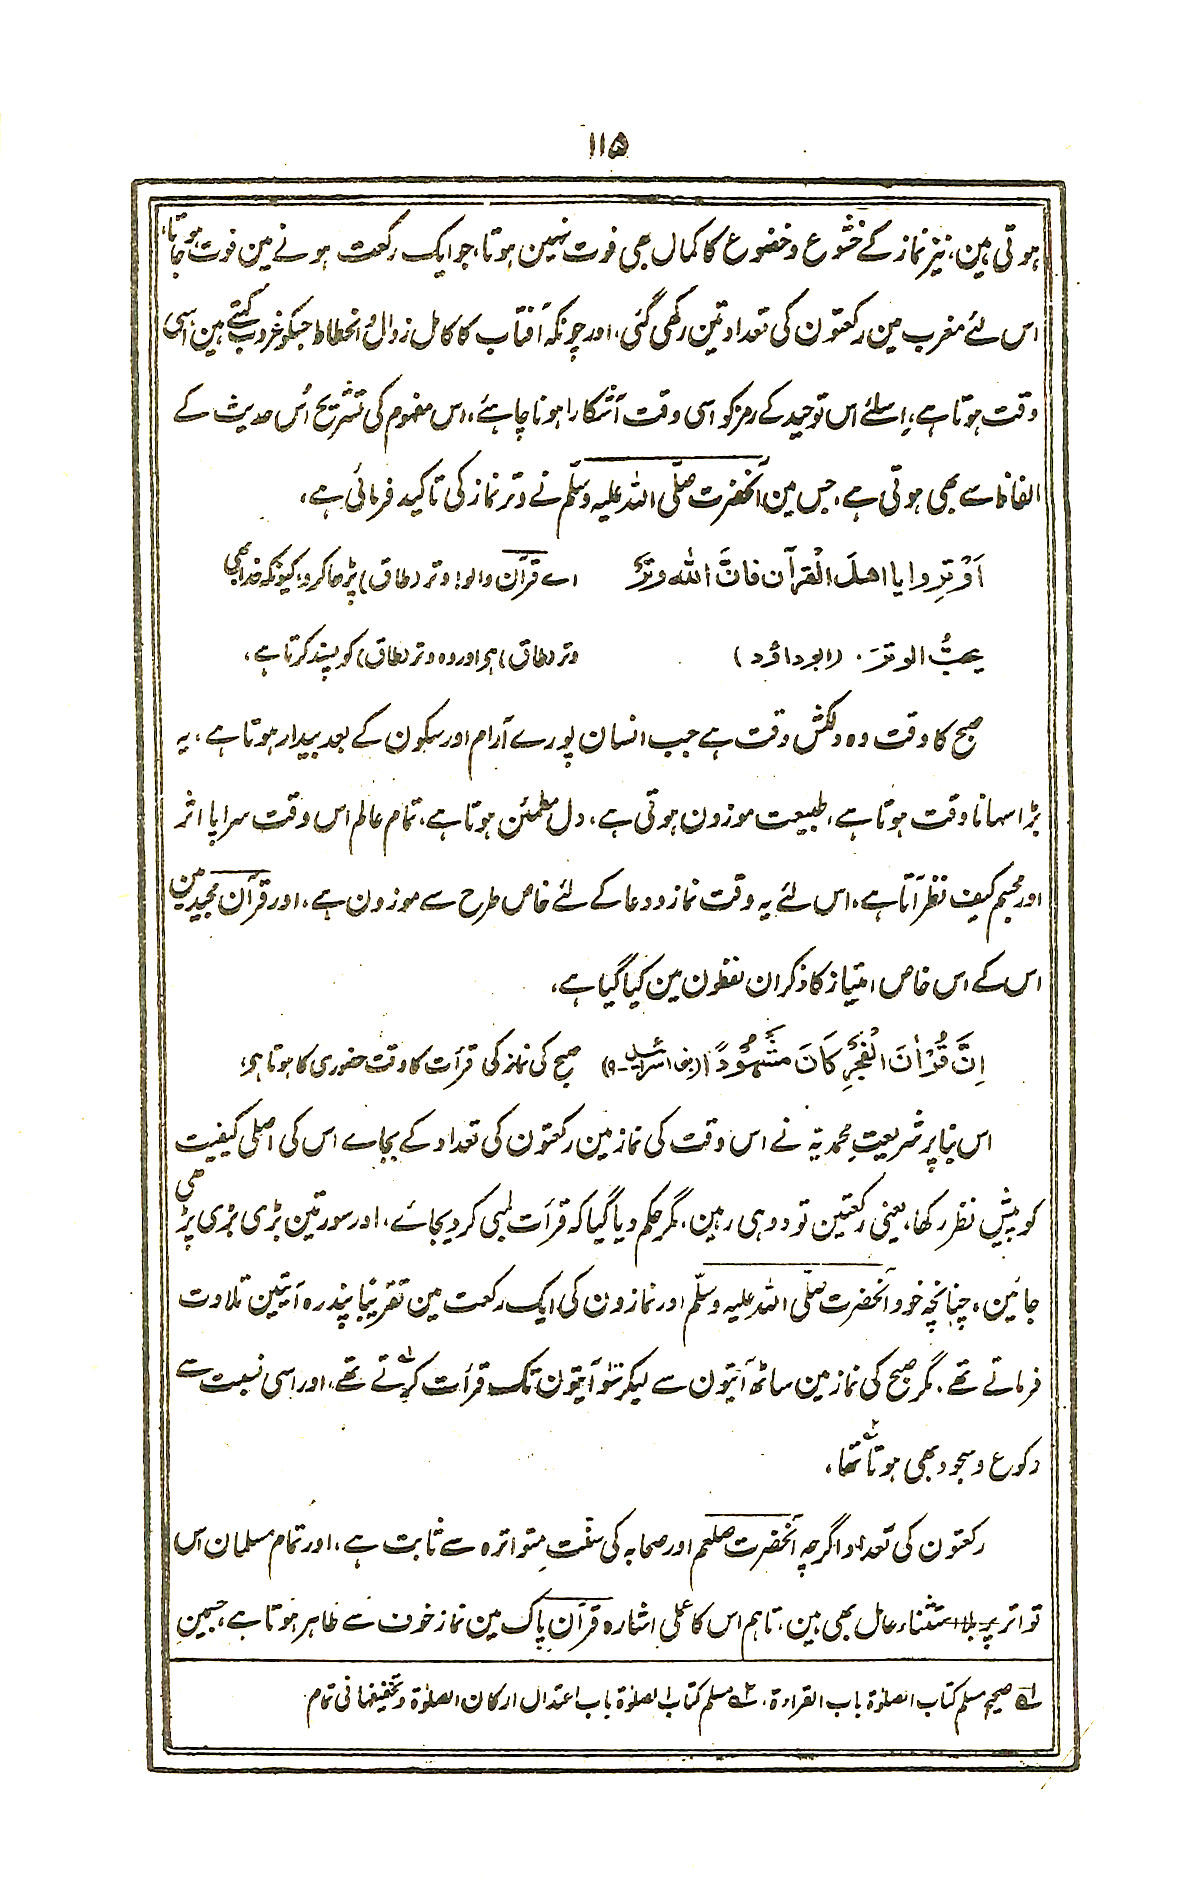 ۱۱۵
ہوتی ہین، نیز نماز کے خشوع و خضوع کا کمال بھی فوت نہین ہوتا، جو ایک رکعت ہونے مین فوت ہو جاتا،
اس لئے مغرب مین رکعتون کی تعداد تین رکھی گئی، اور چونکہ آفتاب کا کامل زوال و انحطاط جسکو غروب کہتے ہین اسی
وقت ہوتا ہے، اِسلئے اس توحید کے رمز کو اسی وقت آشکارا ہونا چاہئے، اس مفہوم کی تشریح اُس حدیث کے
الفاظ سے بھی ہوتی ہے، جس مین آنحضرت صلّی اللہ علیہ وسلّم نے وتر نماز کی تاکید فرمائی ہے،
اَوْتِروا يا اهلَ القرآن فانَّ الله وترٌ اے قرآن والو! وتر (طاق) پڑھا کرو، کیونکہ خدا بھی
يحبُّ الوترَ. (ابوداؤد) وتر (طاق) ہی اور وہ وتر (طاق) کو پسند کرتا ہے،
صبح کا وقت وہ دلکش وقت ہے جب انسان پورے آرام اور سکون کے بعد بیدار ہوتا ہے، یہ
بڑا سہانا وقت ہوتا ہے، طبیعت موزون ہوتی ہے، دل مطمئن ہوتا ہے، تمام عالم اس وقت سراپا اثر
اور مجسم کیف نظر آتا ہے، اس لئے یہ وقت نماز و دعا کے لئے خاص طرح سے موزون ہے، اور قرآن مجید مین
اس کے اس خاص امتیاز کا ذکر ان لفظون مین کیا گیا ہے،
اِنَّ قُرْاٰنَ الْفَجْرِ كَانَ مَشْهُوْدًا (بنی اسرائیل-۹) صبح کی نماز کی قرأت کا وقت حضوری کا ہوتا ہو،
اس بنا پر شریعتِ محمدیّہ نے اس وقت کی نماز مین رکعتون کی تعداد کے بجاے اس کی اصلی کیفیت
کو پیشِ نظر رکھا، یعنی رکعتین تو دو ہی رہین، مگر حکم دیا گیا کہ قرأت لمبی کر دیجائے، اور سورتین بڑی بڑی پڑھی
جائین، چنانچہ خود آنحضرت صلّی اللہ علیہ وسلّم اور نمازون کی ایک رکعت مین تقریبًا پندرہ آیتین تلاوت
فرماتے تھے، مگر صبح کی نماز مین ساٹھ آیتون سے لیکر سَو آیتون تک قرأت کرتے تھے،۱ اور اسی نسبت سے
رکوع و سجود بھی ہوتا تھا،۲
رکعتون کی تعداد اگرچہ آنحضرت صلعم اور صحابہ کی سنّتِ متواترہ سے ثابت ہے، اور تمام مسلمان اس
تواتر پر بلا استثناء عامل بھی ہین، تاہم اس کا عملی اشارہ قرآن پاک مین نماز خون سے ظاہر ہوتا ہے، جسمین
۱؎ صحیح مسلم کتاب الصلوٰۃ باب القراءۃ، ۲؎ مسلم کتاب الصلوٰۃ باب اعتدال ارکان الصلوٰۃ وتخفیفہا فی تمام